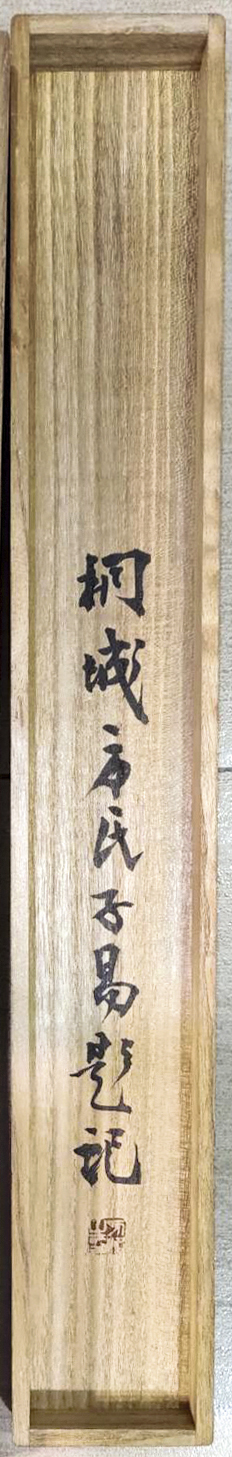 桐城方氏子易題記